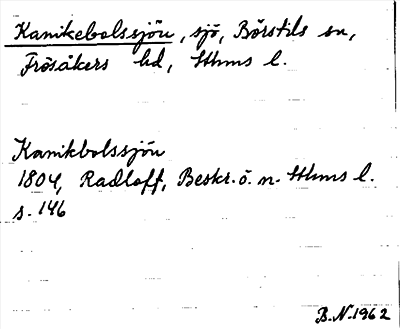 Kanikebolssjön, sjö, Börstils sn,
Frösåkers hd, Sthms l.
Kanikbolssjön
1804, Radloff, Beskr. ö. n. Sthms l.
s. 146
B.N. 1962